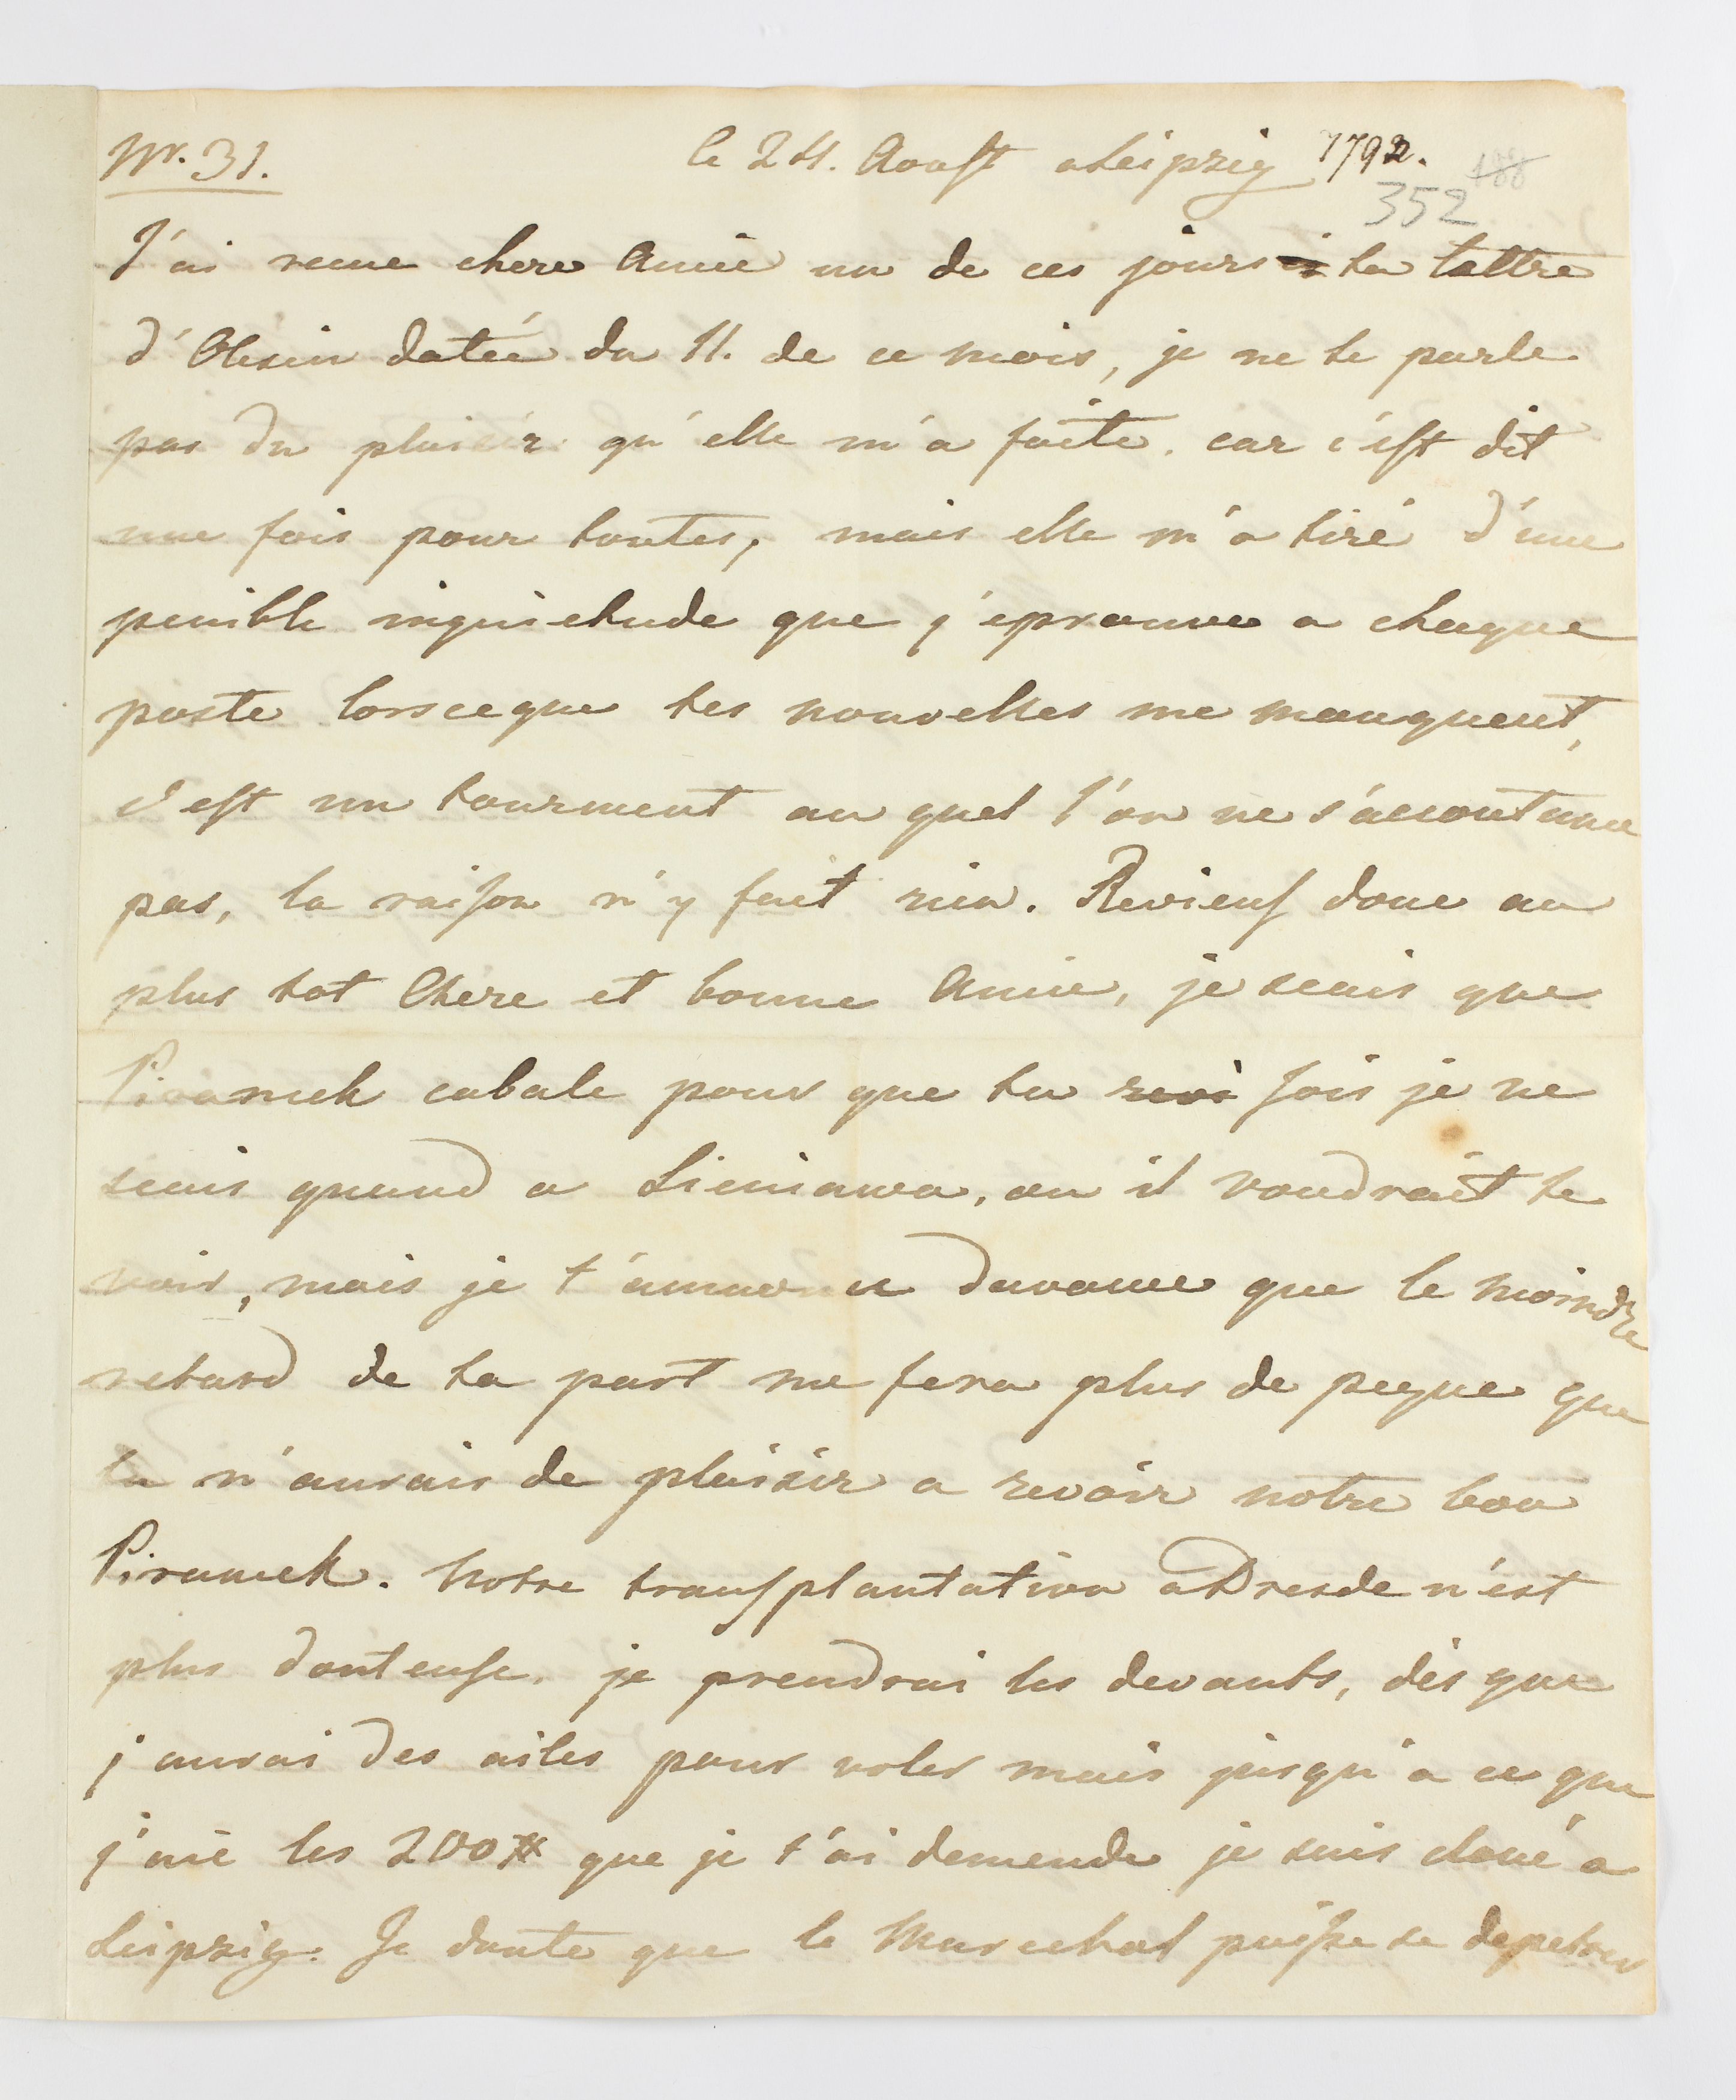 Nr. 31. le 24. Aoust a Leipzig 1792.
188
352
J'ai recue chere Amie un de ces jours ta lettre
d'Olesin datée du 11. de ce mois, je ne te parle
pas du plaisir qu'elle m'a faite. car c'est dit
une fois pour toutes, mais elle m'a tiré d'une
penible inquietude que j'eprouve a chaque
poste lorsceque tes nouvelles me manquent,
c'est un tourment au quel l'on ne s'accoutume
pas, la raison n'y fait rien. Reviens donc au
plus tot Chere et bonne Amie, je scais que
Piramek cabale pour que tu revi sois je ne
scais quand a Sieniawa, ou il voudrait te
voir, mais je t'annonce davance que le moindre
retard de ta part me fera plus de peque que
tu n'aurais de plaisir a revoir notre bon
Piramek. Notre transplantation a Dresde n'est
plus douteuse. je prendrai les devants, dès que
j'aurai des ailes pour voler mais jusqu'a ce que
j'aie les 200# que je t'ai demende je suis cloué a
Leipzig. Je doute que le Marechal puisse se depetrer